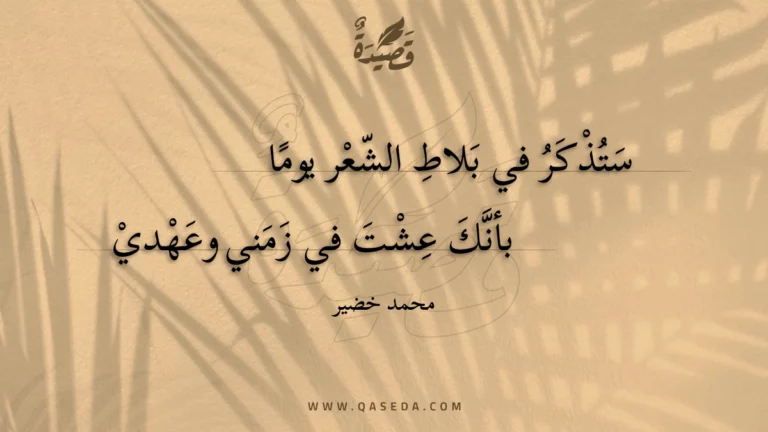 قَصِيْدَةٌ
سَتُذْكَرُ في بَلاطِ الشّعْر يومًا
بأنَّكَ عِشْتَ في زَمَني وعَهْديْ
محمد خضير
WWW.QASEDA.COM